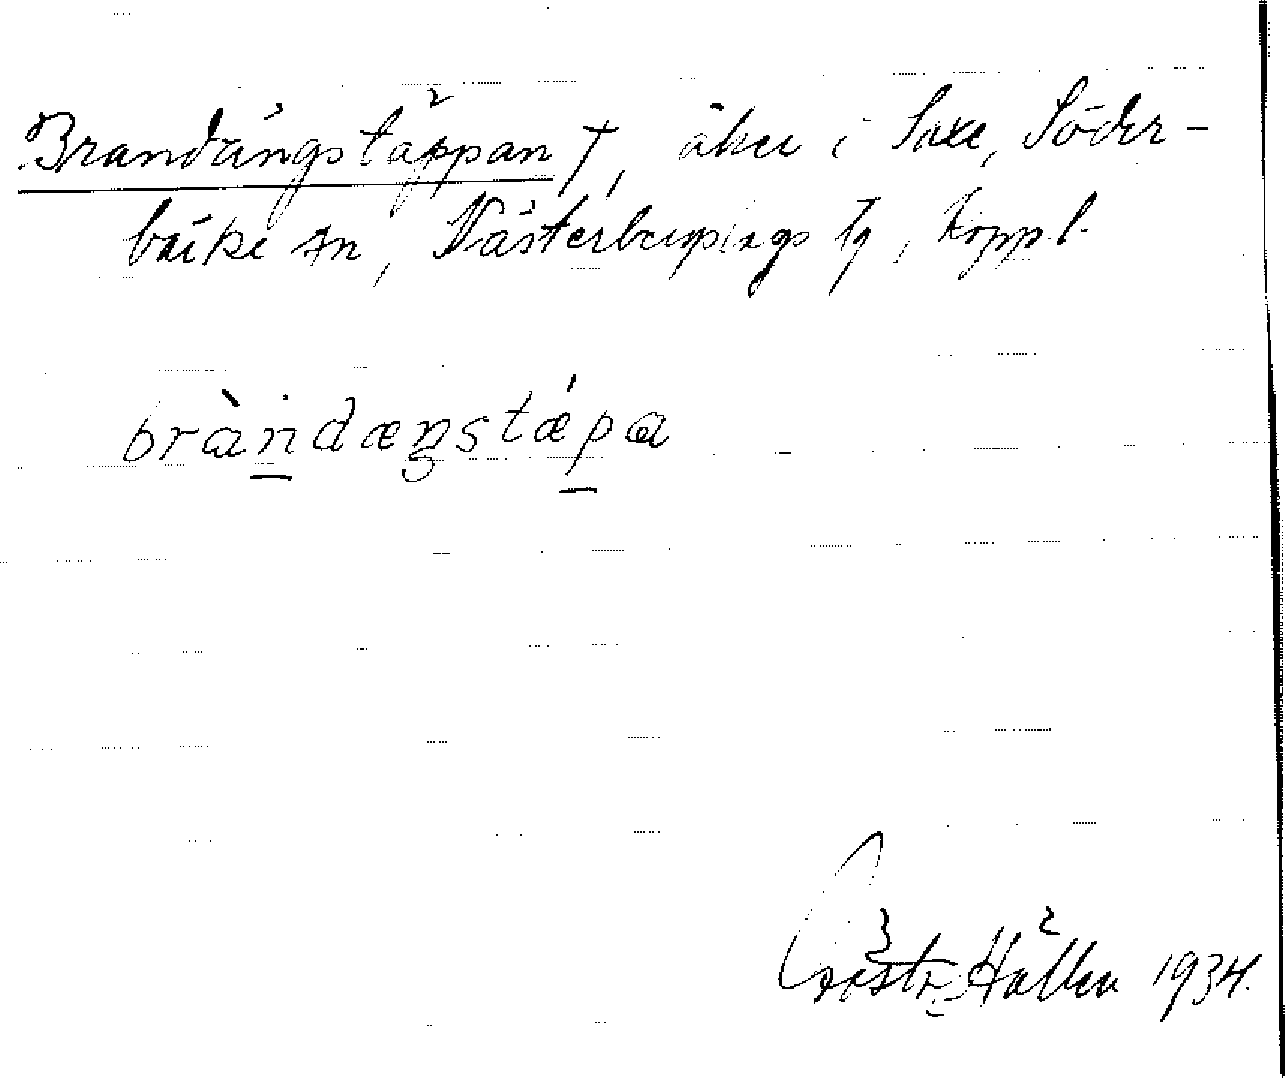 Brandängstäppan †, åker i Saxe, Söder-
bärke sn, Västerbergslags tg, Koppl.
bràndæŋstǽpa
Göstr. Hållen 1934.